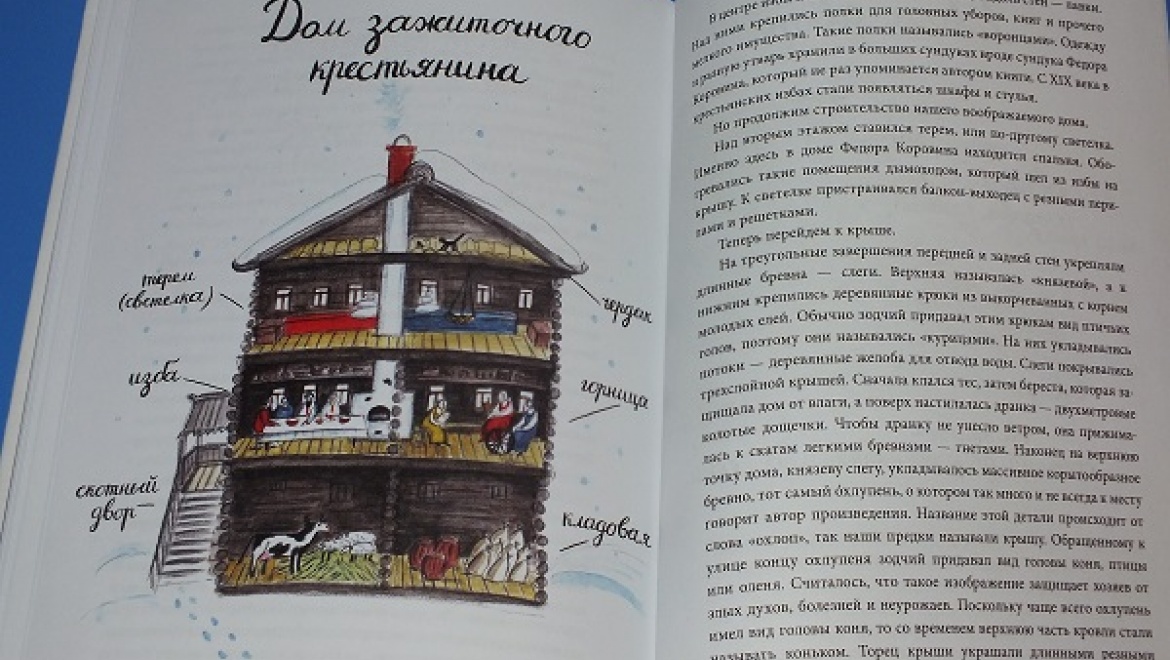 Дом зажиточного
крестьянина
терем
(светелка)
чердак
изба
горница
скотный
двор
кладовая
В центре
стен — лавки.
Над ними крепились полки для головных уборов, книг и прочего
мелкого имущества. Такие полки назывались «воронцами». Одежду
и разную утварь хранили в больших сундуках вроде сундука Федора
Коровина, который не раз упоминается автором книги. С XIX века в
крестьянских избах стали появляться шкафы и стулья.
Но продолжим строительство нашего воображаемого дома.
Над вторым этажом ставился терем, или по-другому светелка.
Именно здесь в доме Федора Коровина находится спальня. Обо-
гревались такие помещения дымоходом, который шел из избы на
крышу. К светелке пристраивался балкон-выходец с резными пери-
лами и решетками.
Теперь перейдем к крыше.
На треугольные завершения передней и задней стен укрепляли
длинные бревна — слеги. Верхняя называлась «князевой», а к
нижним крепились деревянные крюки из выкорчеванных с корнем
молодых елей. Обычно зодчий придавал этим крюкам вид птичьих
голов, поэтому они назывались «курицами». На них укладывались
потоки — деревянные желоба для отвода воды. Слеги покрывались
трехслойной крышей. Сначала клался тес, затем береста, которая за-
щищала дом от влаги, а поверх настилалась дранка — двухметровые
колотые дощечки. Чтобы дранку не унесло ветром, она прижима-
лась к скатам легкими бревнами — гнетами. Наконец на верхнюю
точку дома, князеву слегу, укладывалось массивное корытообразное
бревно, тот самый óхлупень, о котором так много и не всегда к месту
говорит автор произведения. Название этой детали происходит от
слова «охлоп», так наши предки называли крышу. Обращенному к
улице концу охлупеня зодчий придавал вид головы коня, птицы
или оленя. Считалось, что такое изображение защищает хозяев от
злых духов, болезней и неурожаев. Поскольку чаще всего охлупень
имел вид головы коня, то со временем верхнюю часть кровли стали
называть коньком. Торец крыши украшали длинными резными